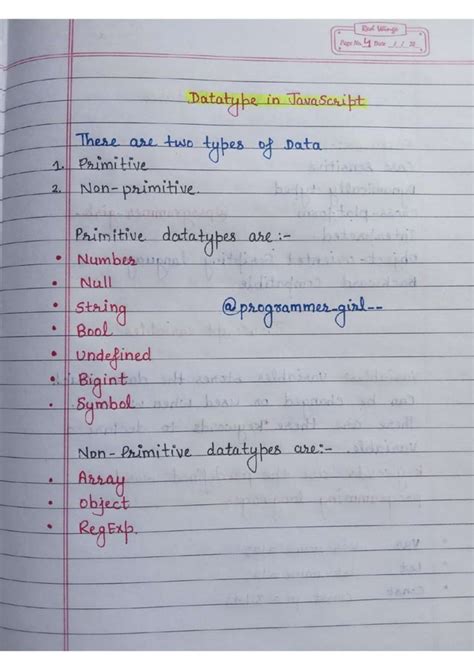 Real Wings
Page No. 4 Date / /
Datatype in JavaScript
There are two types of Data
1. Primitive
2. Non-primitive.
Primitive datatypes are:-
• Number
• Null
• String
@programmer_girl__
• Bool
• undefined
• Bigint
• Symbol
Non-Primitive datatypes are:-
• Array
• object
• RegExp.